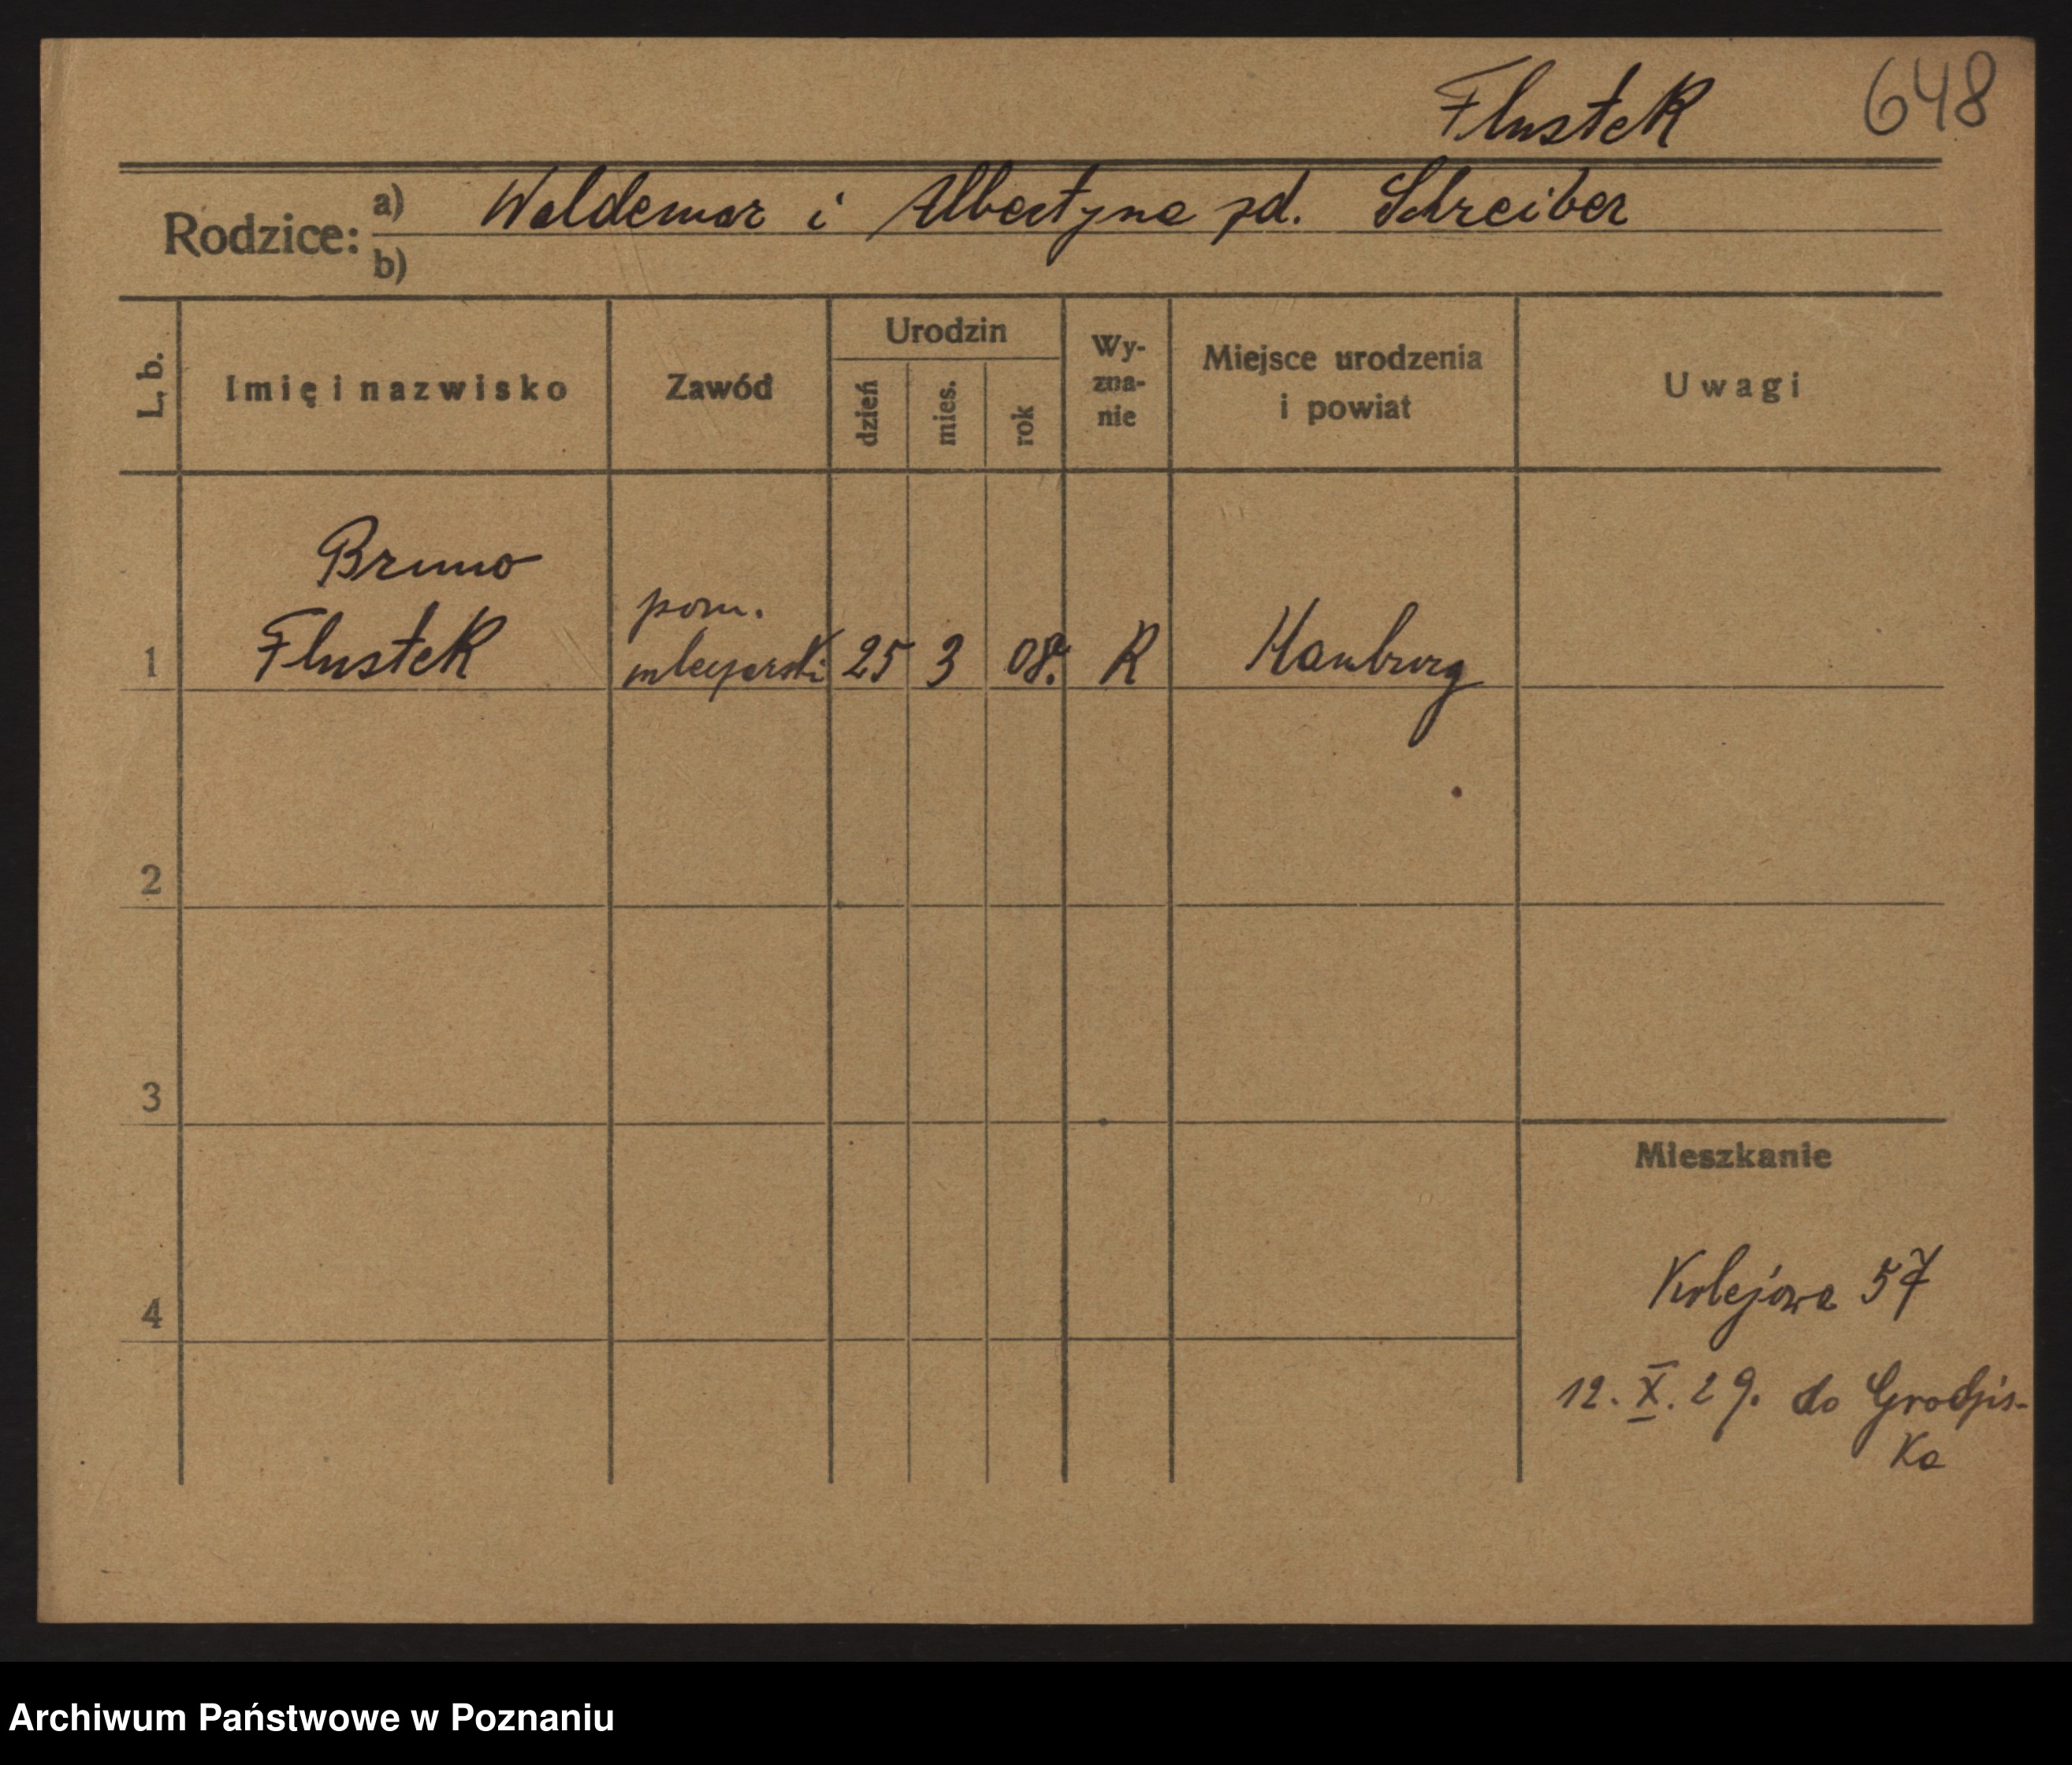 Flustek 648
Rodzice: a) Waldemar i Albertyna zd. Schreiber
b)
L, b. Imię i nazwisko Zawód Urodzin dzień mies. rok Wy-zna-nie Miejsce urodzenia i powiat Uwagi
Bruno
pom.
1 Flustek mleczarski 25 3 08. R Hamburg
2
3
Mieszkanie
Kolejowa 57
4
12. X. 29. do Grodzis-
ka
Archiwum Państwowe w Poznaniu